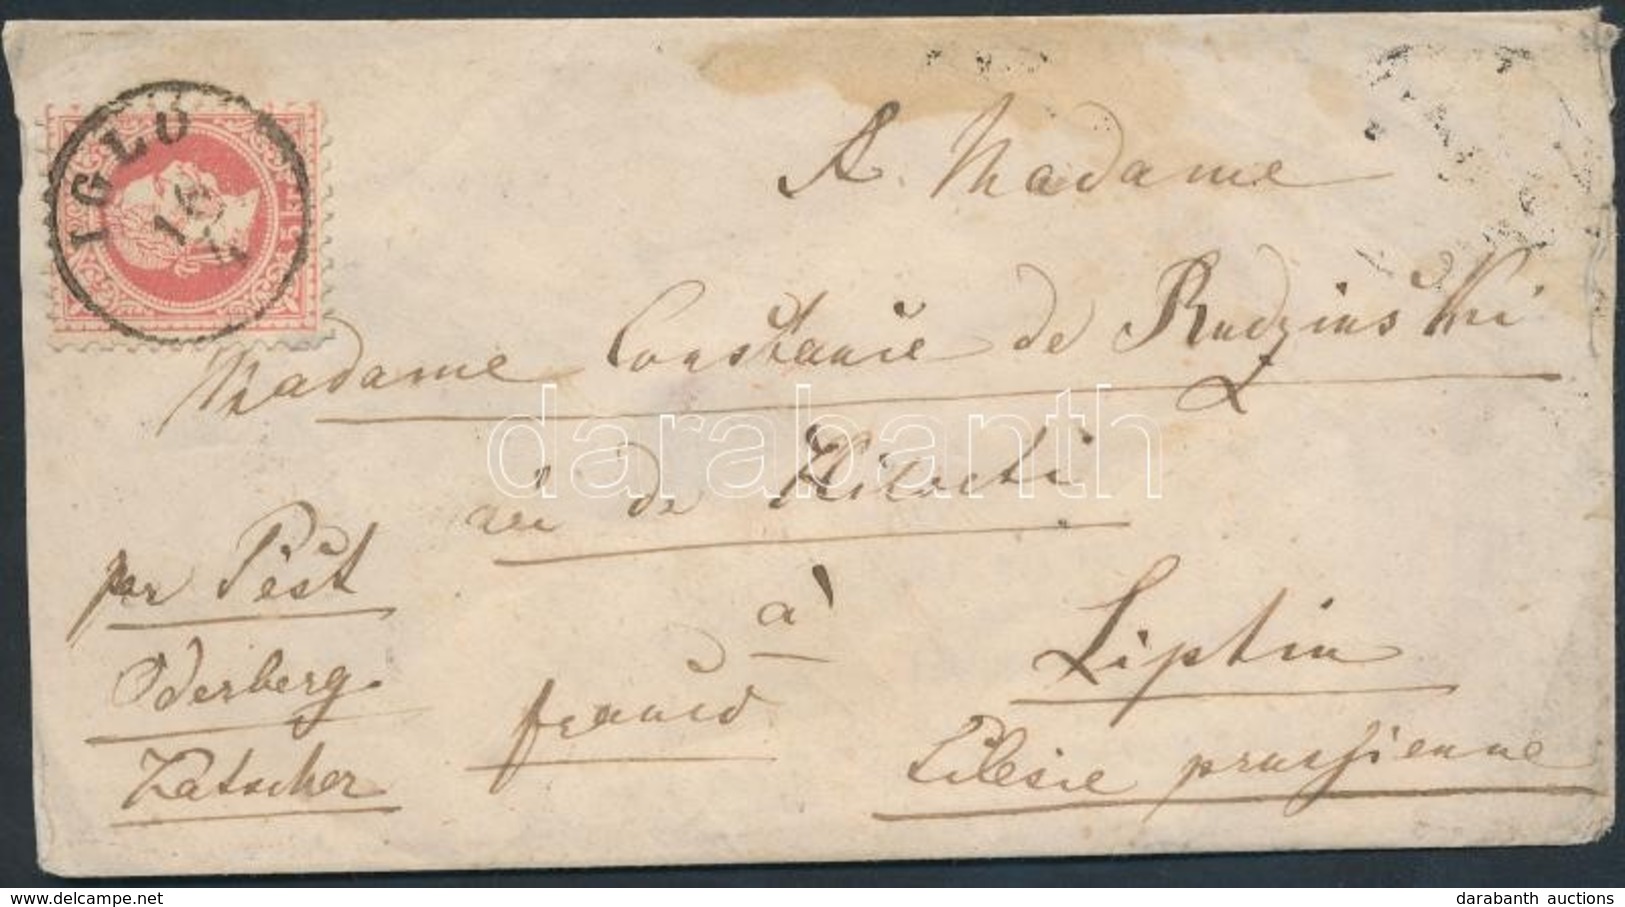 IGLÓ
16
4
5
A Madame
Madame Constancie de Rudzinski
née de
per Pest
Oderberg
Katscher
franco
à
Liptin
Silesie prussienne
darabanth
darabanth auctions